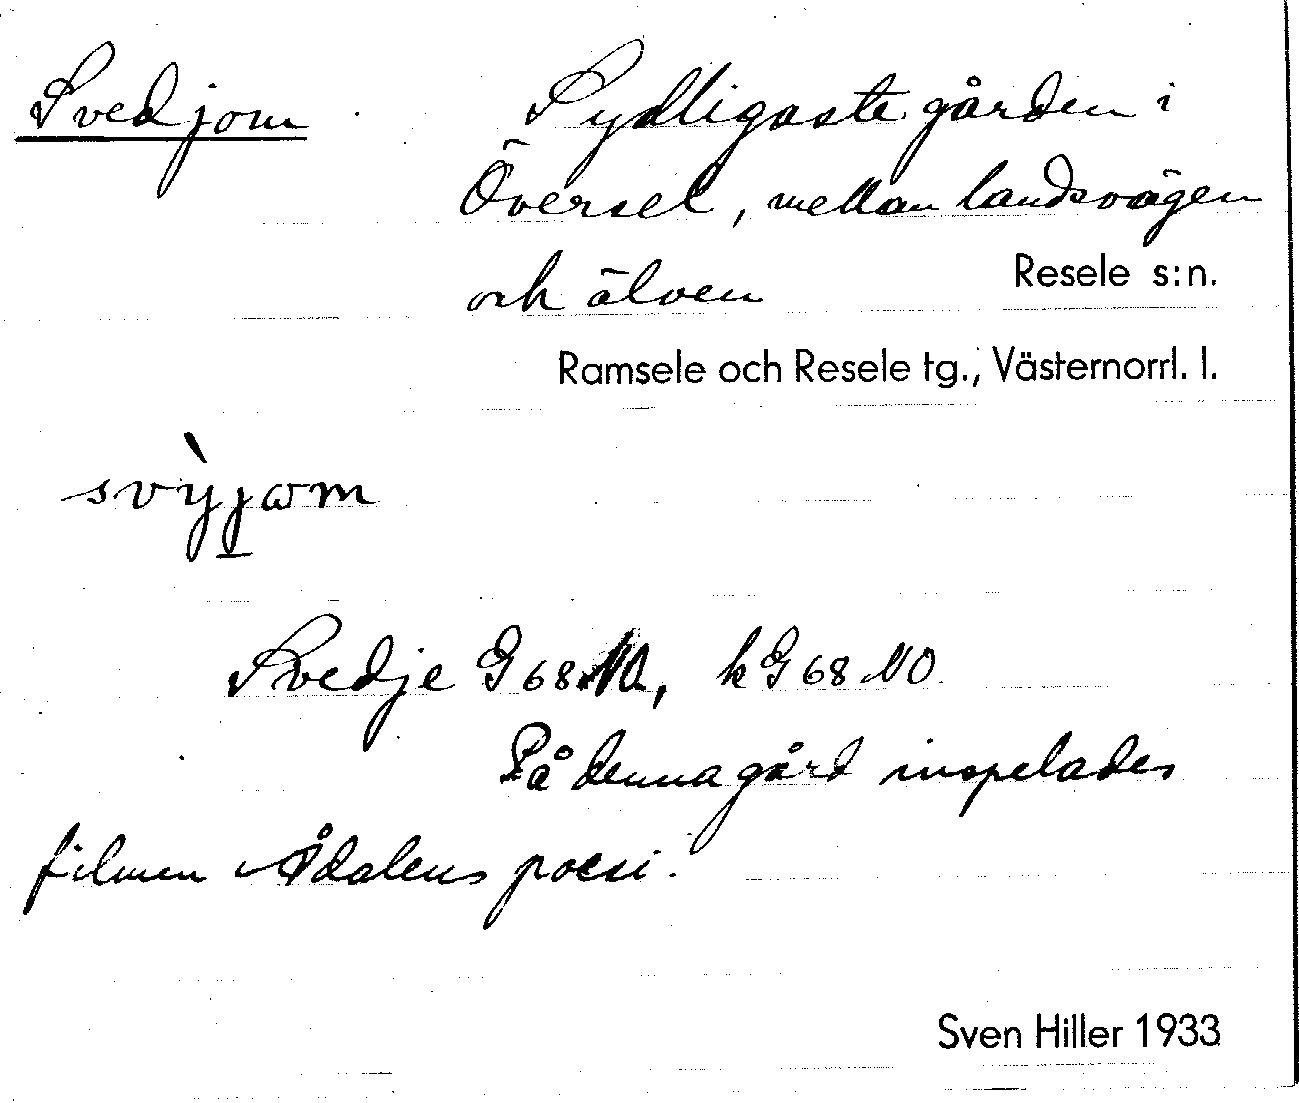 Svedjom
Sydligaste gården i
Översel, mellan landsvägen
och älven
Resele s:n.
Ramsele och Resele tg., Västernorrl. l.
svỳjɷm
Svedje G 68 NO, k G 68 NO
På denna gård inspelades
filmen Ådalens poesi.
Sven Hiller 1933